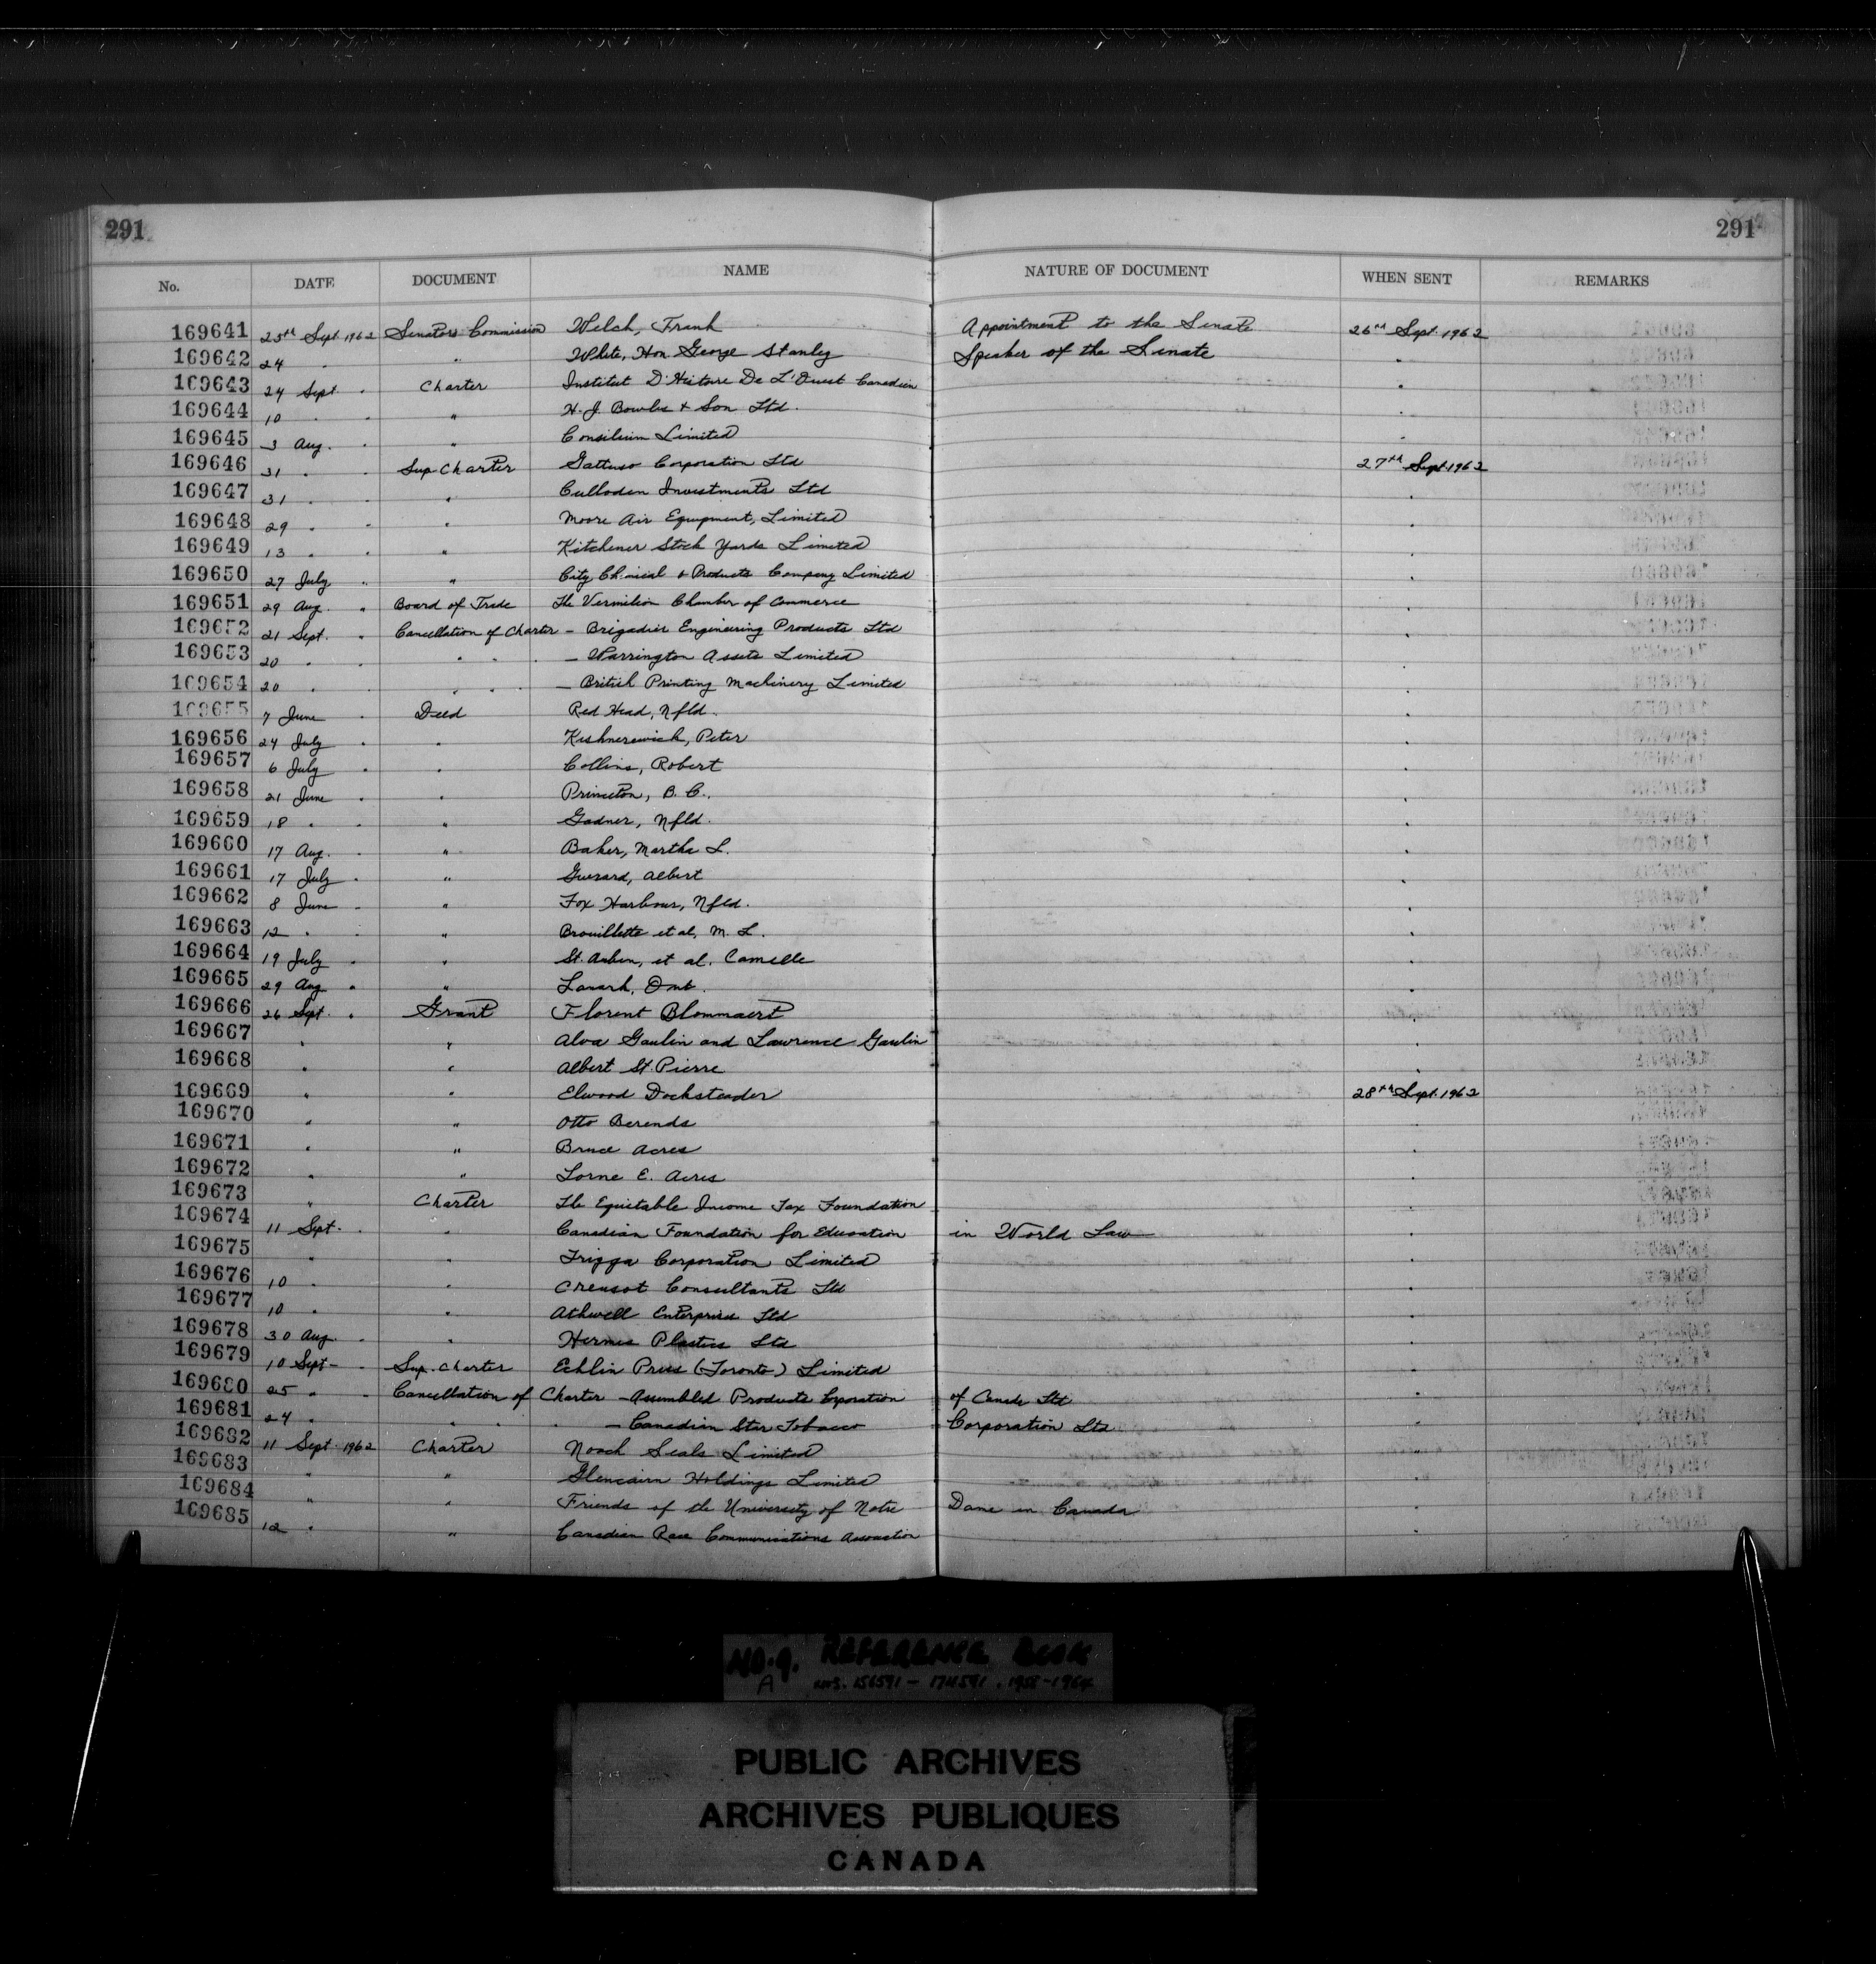 291 291
No. DATE DOCUMENT NAME NATURE OF DOCUMENT WHEN SENT REMARKS
169641 25th Sept. 1962 Senators Commission Welch, Frank Appointment to the Senate 26th Sept. 1962
169642 24 " " White, Hon. George Stanley Speaker of the Senate "
169643 24 Sept. " Charter Institut D'Histoire De L'Ouest Canadien "
169644 10 " " " H. J. Bowles & Son Ltd. "
169645 3 Aug. " " Consilium Limited "
169646 31 " " Sup Charter Gattuso Corporation Ltd 27th Sept 1962
169647 31 " " " Culloden Investments Ltd "
169648 29 " " " Moore Air Equipment, Limited "
169649 13 " " " Kitchener Stock Yards Limited "
169650 27 July " " City Chemical & Products Company Limited "
169651 29 Aug. " Board of Trade The Vermilion Chamber of Commerce "
169652 21 Sept. " Cancellation of Charter - Brigadier Engineering Products Ltd "
169653 20 " " " " " - Warrington Assets Limited "
169654 20 " " " " - British Printing Machinery Limited "
169655 7 June " Deed Red Head, Nfld. "
169656 24 July " " Peter "
169657 6 July " " Collins, Robert "
169658 21 June " " Princeton, B. C. "
169659 18 " " " Nfld. "
169660 17 Aug. " " Baker, Martha L. "
169661 17 July " " Albert "
169662 8 June " " Fox Harbour, Nfld. "
169663 12 " " " Brouillette et al, M. L. "
169664 19 July " " St. Aubin, et al. Camille "
169665 29 Aug " " Lanark, Ont. "
169666 26 Sept. " Grant Florent Blommaert "
169667 " " Alva Gaulin and Lawrence Gaulin "
169668 " " Albert St. Pierre "
169669 " " Elwood Docksteader 28th Sept. 1962
169670 " " Otto Berends "
169671 " " Bruce Acres "
169672 " " Lorne E. Acres "
169673 " Charter The Equitable Income Tax Foundation "
169674 11 Sept. " Canadian Foundation for Education in World Law "
169675 " " Frigga Corporation Limited "
169676 10 " " Creusot Consultants Ltd "
169677 10 " " Athwell Enterprises Ltd "
169678 30 Aug. " " Hermes Plastics Ltd "
169679 10 Sept - " Sup. Charter Echlin Press (Toronto) Limited "
169680 25 " " Cancellation of Charter - Assembled Products Corporation of Canada Ltd "
169681 24 " " " " - Canadian Star Tobacco Corporation Ltd "
169682 11 Sept. 1962 Charter Noack Seals Limited "
169683 " " Glencairn Holdings Limited "
169684 " " Friends of the University of Notre Dame in Canada "
169685 12 " " Canadian Race Communications Association "
No. 9. REFERENCE BOOK
A NOS. 156591 - 174591. 1958-1964
PUBLIC ARCHIVES
ARCHIVES PUBLIQUES
CANADA